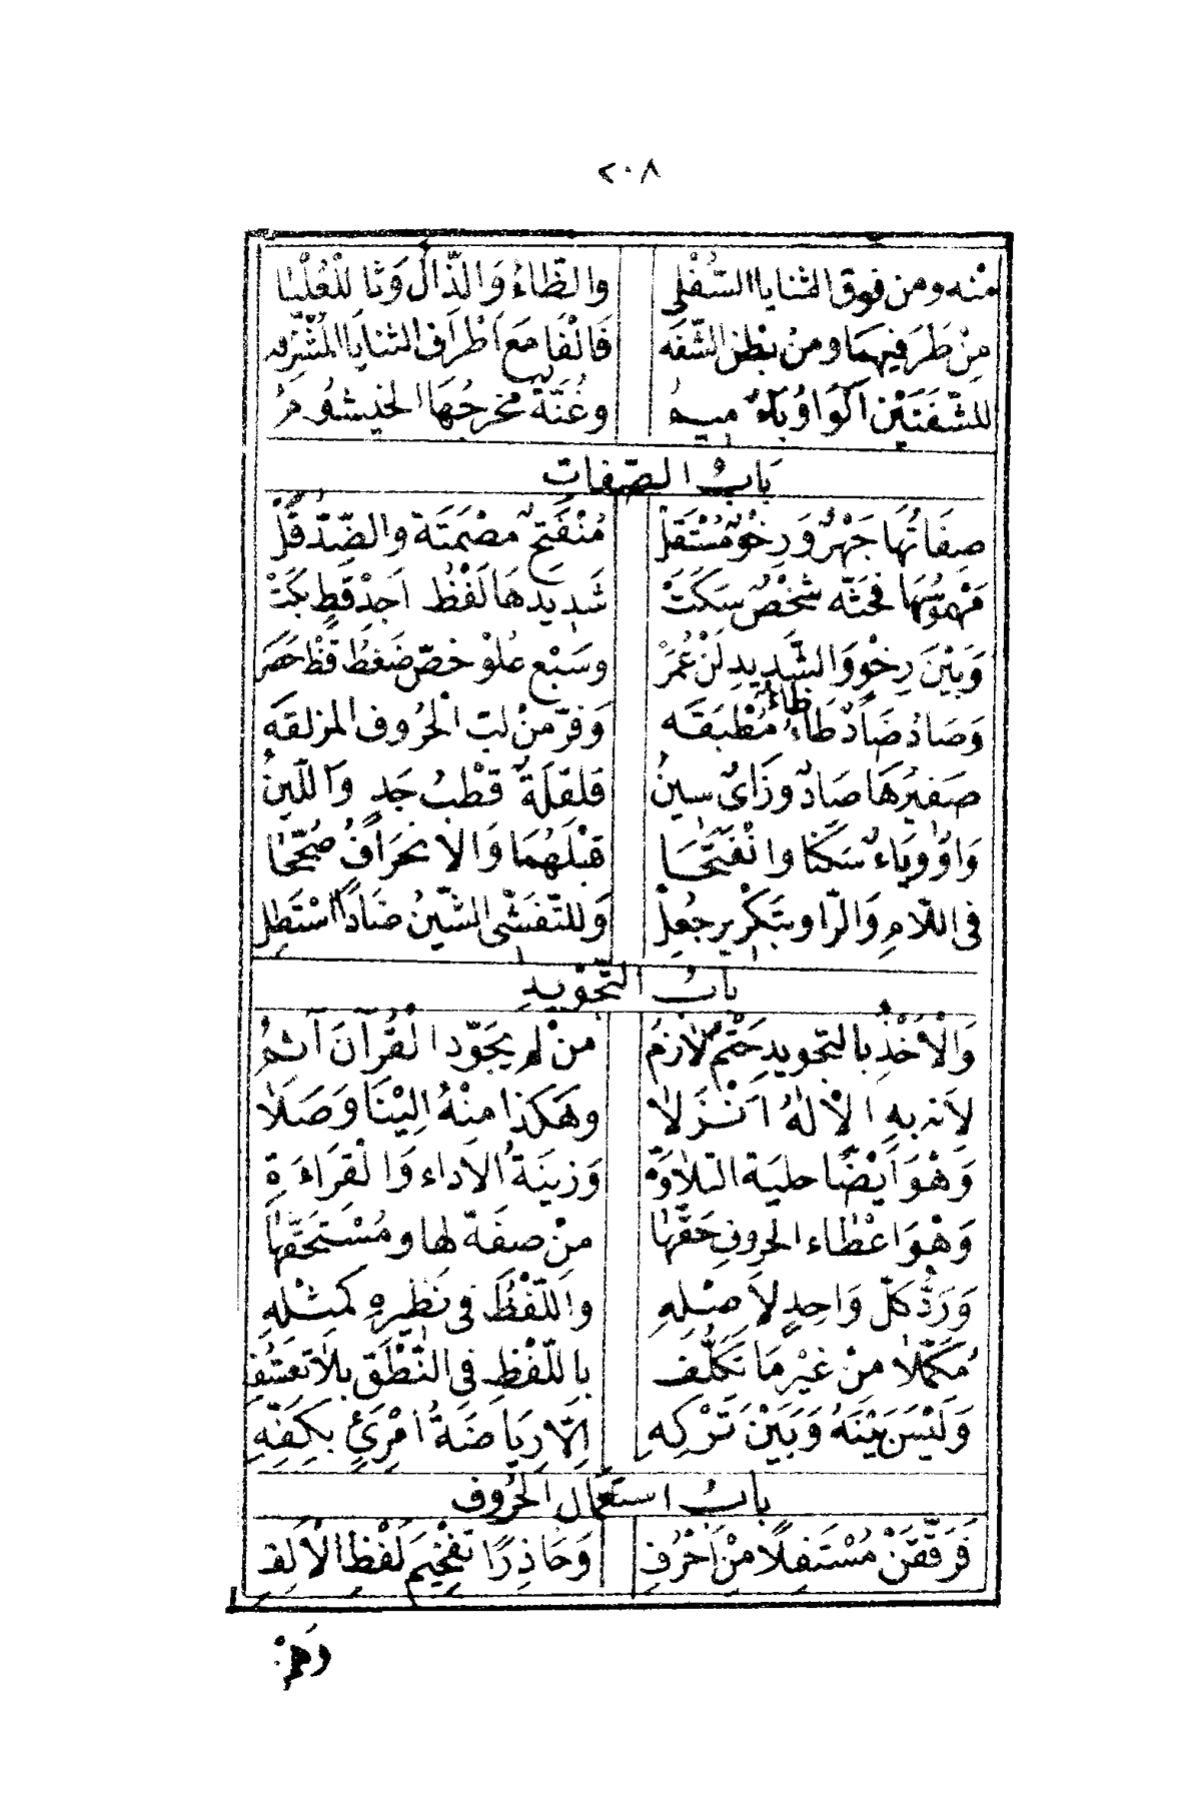 ٢٠٨
مِنْهُ وَمِنْ فَوْقِ الثَّنَايَا السُّفْلَى وَالظَّاءُ وَالذَّالُ وَثَا لِلْعُلْيَا
مِنْ طَرَفَيْهِمَا وَمِنْ بَطْنِ الشَّفَه فَالْفَا مَعَ اَطْرَافِ الثَّنَايَا الْمُشْرِفَه
لِلشَّفَتَيْنِ اَلْوَاوُ بَاءٌ مِيمُ وَغُنَّةٌ مَخْرَجُهَا الْخَيْشُومُ
بَابُ الصِّفَات
صِفَاتُهَا جَهْرٌ وَرِخْوٌ مُسْتَفِلْ مُنْفَتِحٌ مُصْمَتَةٌ وَالضِّدَّ قُلْ
مَهْمُوسُهَا فَحَثَّهُ شَخْصٌ سَكَتْ شَدِيدُهَا لَفْظُ اَجِدْ قَطٍ بَكَتْ
وَبَيْنَ رِخْوٍ وَالشَّدِيدِ لِنْ عُمَرْ وَسَبْعُ عُلْوٍ خُصَّ ضَغْطٍ قِظْ حَصَرْ
وَصَادُ ضَادٌ طَاءُ ظَاءٌ مُطْبَقَه وَفَرَّ مِنْ لُبِّ الْحُرُوفُ الْمُزْلَقَه
صَفِيرُهَا صَادٌ وَزَايٌ سِينُ قَلْقَلَةٌ قُطْبُ جَدٍ وَاللِّينُ
وَاوٌ وَيَاءٌ سَكَنَا وَانْفَتَحَا قَبْلَهُمَا وَالْاِنْحِرَافُ صُحِّحَا
فِى اللَّامِ وَالرَّا وَبِتَكْرِيرٍ جُعِلْ وَلِلتَّفَشِّى الشِّينُ ضَادًا اُسْتُطِلْ
بَابُ التَّجْوِيدِ
وَالْاَخْذُ بِالتَّجْوِيدِ حَتْمٌ لَازِمُ مَنْ لَمْ يُجَوِّدِ الْقُرْآنَ آثِمُ
لِاَنَّهُ بِهِ الْاِلٰهُ اَنْزَلَا وَهٰكَذَا مِنْهُ اِلَيْنَا وَصَلَا
وَهْوَ اَيْضًا حِلْيَةُ التِّلَاوَةِ وَزِينَةُ الْاَدَاءِ وَالْقِرَاءَةِ
وَهْوَ اِعْطَاءُ الْحُرُوفِ حَقَّهَا مِنْ صِفَةٍ لَهَا وَمُسْتَحَقَّهَا
وَرَدُّ كُلِّ وَاحِدٍ لِاَصْلِهِ وَاللَّفْظُ فِى نَظِيرِهِ كَمِثْلِهِ
مُكَمَّلًا مِنْ غَيْرِ مَا تَكَلُّفِ بِاللُّفْظِ فِى النُّطْقِ بِلَا تَعَسُّفِ
وَلَيْسَ بَيْنَهُ وَبَيْنَ تَرْكِهِ اِلَّا رِيَاضَةُ امْرِئٍ بِكَفِّهِ
بَابُ اسْتِعْمَالِ الْحُرُوفِ
فَرَقِّقَنْ مُسْتَفِلًا مِنْ اَحْرُفِ وَحَاذِرًا تَفْخِيمَ لَفْظِ الْاَلِفِ